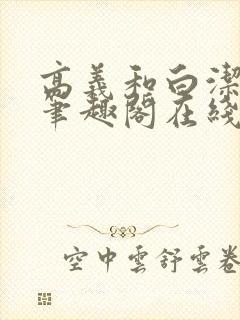 高義和白潔
筆趣閣在綫
空中雲舒雲卷